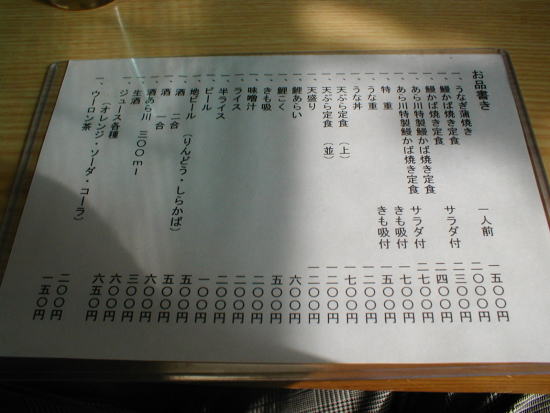 お品書き
一、うなぎ蒲焼き 一人前 一五〇〇円
一、鰻かば焼き定食 二〇〇〇円
一、鰻かば焼き定食 サラダ付 二三〇〇円
一、あら川特製鰻かば焼き定食 二四〇〇円
一、あら川特製鰻かば焼き定食 サラダ付 二七〇〇円
一、特重 きも吸付 一七〇〇円
一、うな重 きも吸付 一五〇〇円
一、うな丼 一二〇〇円
一、天ぷら定食（上） 一七〇〇円
一、天ぷら定食（並） 一二〇〇円
一、天盛り 一二〇〇円
一、鯉あらい 六〇〇円
一、鯉こく 五〇〇円
一、きも吸 二〇〇円
一、味噌汁 二〇〇円
一、ライス 二〇〇円
一、半ライス 一〇〇円
一、ビール 五〇〇円
一、地ビール（りんどう・しらかば） 五〇〇円
一、酒 二合 六〇〇円
一、酒 一合 三〇〇円
一、酒あら川 六〇〇円
一、生酒 三〇〇ml 六五〇円
一、ジュース各種
（オレンジ・ソーダ・コーラ） 二〇〇円
一、ウーロン茶 一五〇円